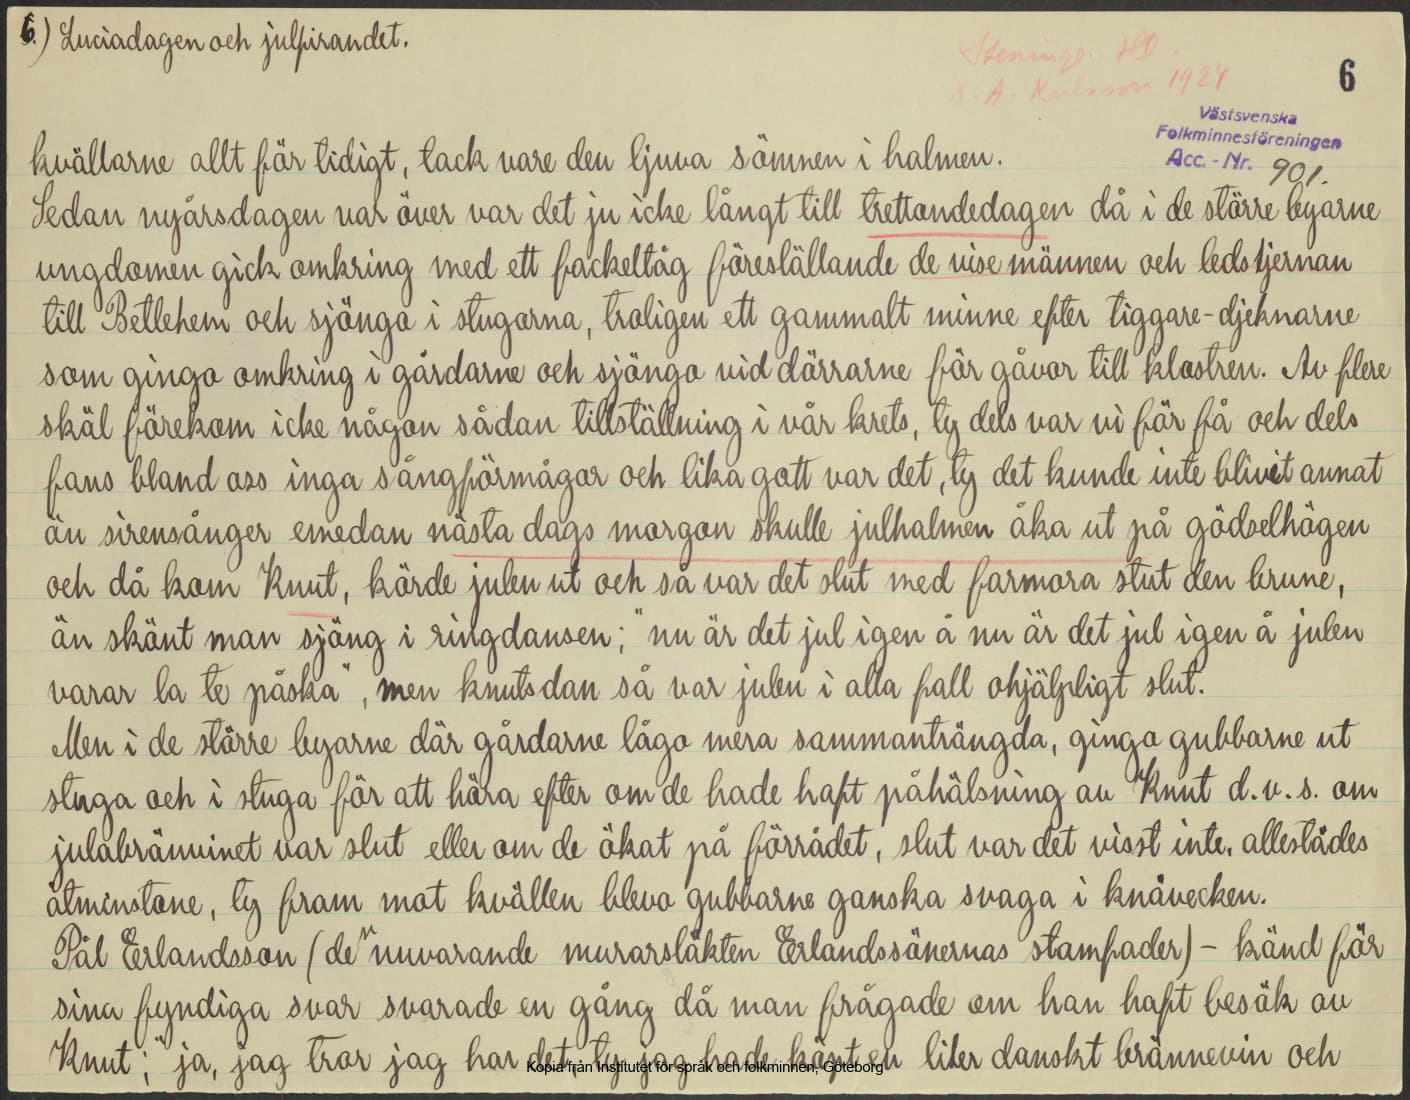 6.) Luciadagen och julfirandet.
Steninge. HD.
A. Karlsson 1924
6
Västsvenska
Folkminnesföreningen
Acc. - Nr. 901.
kvällarne allt för tidigt, tack vare den ljuva sömnen i halmen.
Sedan nyårsdagen var över var det ju icke långt till trettondedagen då i de större byarne
ungdomen gick omkring med ett fackeltåg föreställande de vise männen och ledstjernan
till Betlehem och sjöngo i stugorna, troligen ett gammalt minne efter tiggare-djeknarne
som gingo omkring i gårdarne och sjöngo vid dörrarne för gåvor till klostren. Av flere
skäl förekom icke någon sådan tillställning i vår krets, ty dels var vi för få och dels
fans bland oss inga sångförmågor och lika gott var det, ty det kunde inte blivit annat
än sirensånger emedan nästa dags morgon skulle julhalmen åka ut på gödselhögen
och då kom Knut, körde julen ut och så var det slut med farmora stut den brune,
än skönt man sjöng i ringdansen; "nu är det jul igen å nu är det jul igen å julen
varar la te påska", men knutsdan så var julen i alla fall ohjälpligt slut.
Men i de större byarne där gårdarne lågo mera sammanträngda, gingo gubbarne ut
stuga och i stuga för att höra efter om de hade haft påhälsning av Knut d.v.s. om
julabränvinet var slut eller om de ökat på förrådet, slut var det visst inte, allestädes
åtminstone, ty fram mot kvällen blevo gubbarne ganska svaga i knävecken.
Pål Erlandsson (den nuvarande murarsläkten Erlandssönernas stamfader) - känd för
sina fyndiga svar svarade en gång då man frågade om han haft besök av
Knut; "ja, jag tror jag har det, ty jag hade köpt en liter danskt brännevin och
Kopia från Institutet för språk och folkminnen, Göteborg